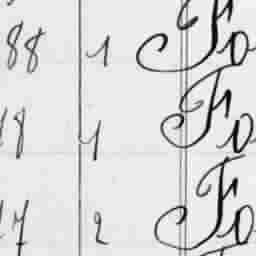 88 1 Fo
18 1 Fo
17 2 Fo